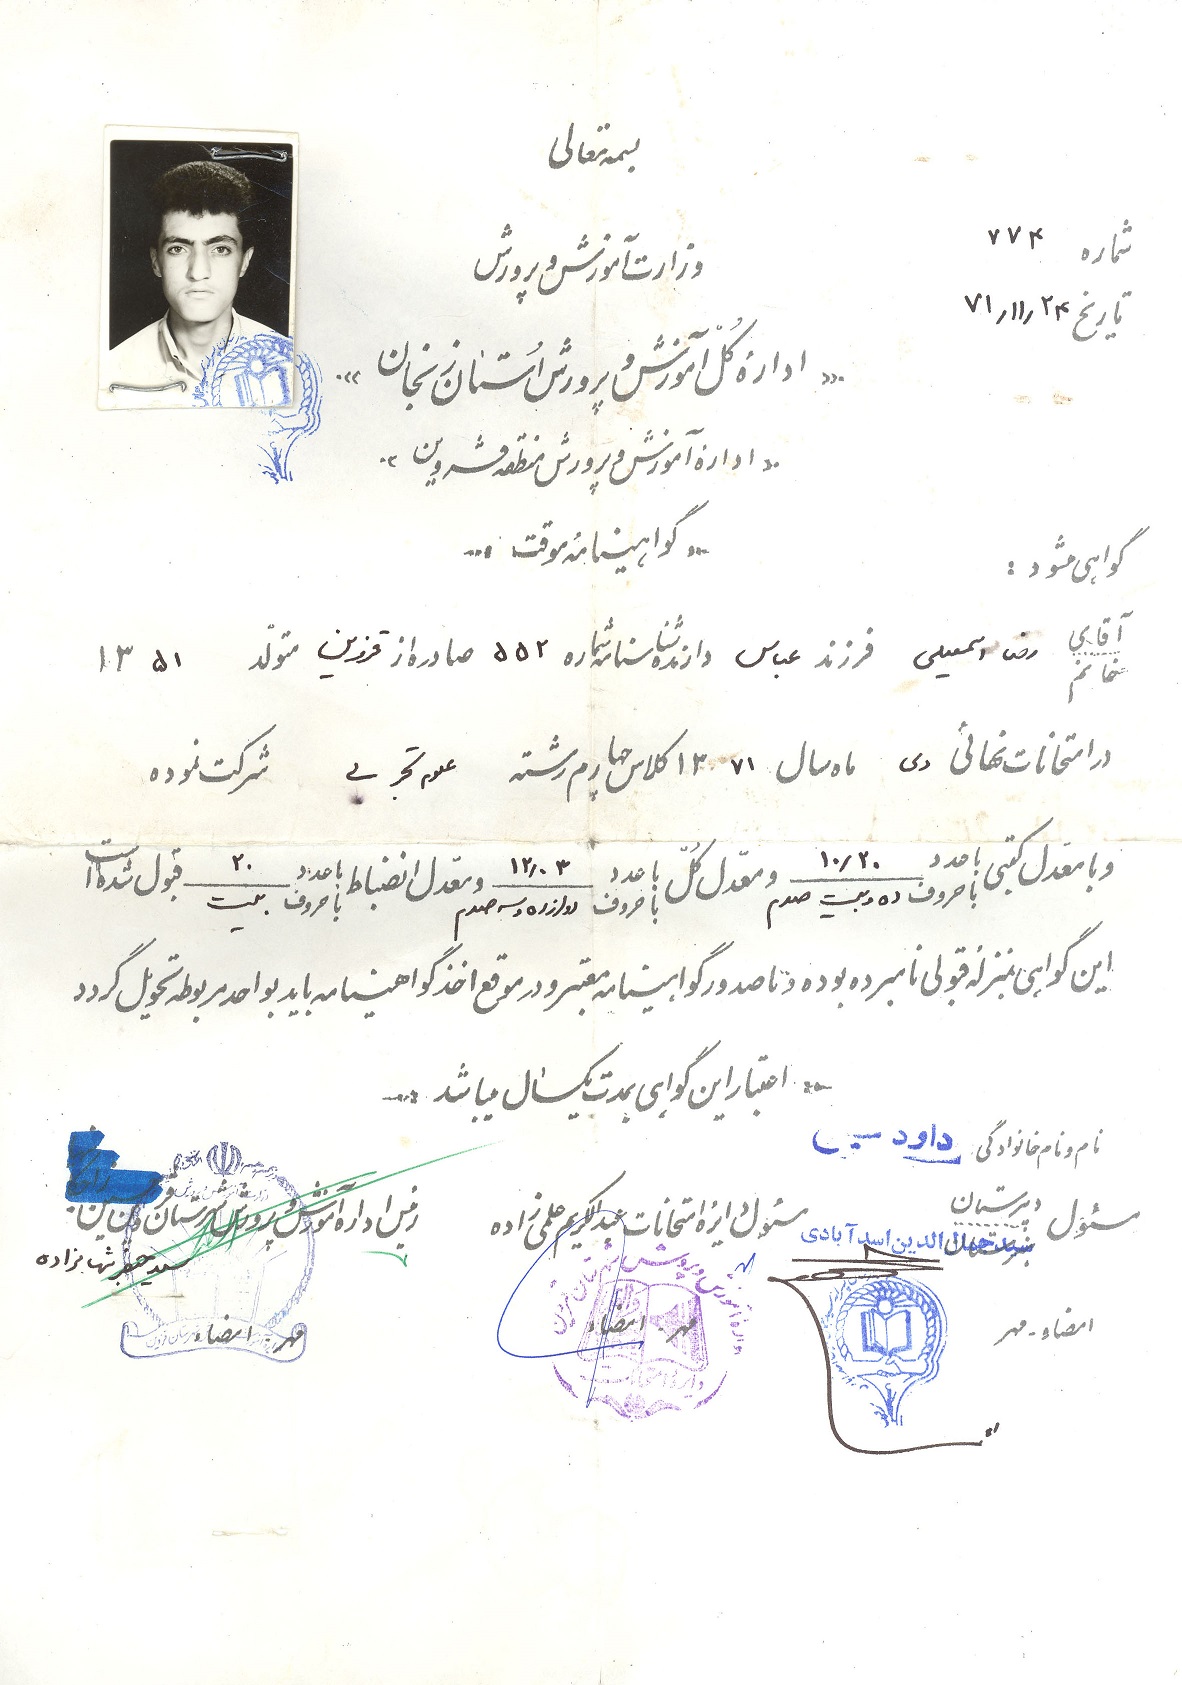 بسمه تعالی
شماره ۷۷۴
وزارت آموزش و پرورش
تاریخ ۷۱/۱۱/۲۴
اداره کل آموزش و پرورش استان زنجان
اداره آموزش و پرورش منطقه قزوین
گواهینامه موقت
گواهی میشود :
آقای
خانم
رضا اسمعیلی فرزند عباس دارنده شناسنامه شماره ۵۵۲ صادره از قزوین متولد ۱۳۵۱
در امتحانات نهائی دی ماه سال ۱۳۷۱ کلاس چهارم رشته علوم تجربی شرکت نموده
و با معدل کتبی با عدد ۱۰/۲۰ با حروف ده و بیست صدم و معدل کل با عدد ۱۲/۰۳ با حروف دوازده و سه صدم و معدل انضباط با عدد ۲۰ با حروف بیست قبول شده است
این گواهی بمنزله قبولی نامبرده بوده و تا صدور گواهینامه معتبر و در موقع اخذ گواهینامه باید بواحد مربوطه تحویل گردد
اعتبار این گواهی بمدت یکسال میباشد
نام و نام خانوادگی داود
مسئول دبیرستان
سید جمال الدین اسدآبادی
امضاء - مهر
مسئول دایره امتحانات عبدالکریم حلمی زاده
مهر - امضاء
دایره امتحانات
رئیس اداره آموزش و پرورش شهرستان قزوین
سید جعفر شهابزاده
مهر - امضاء